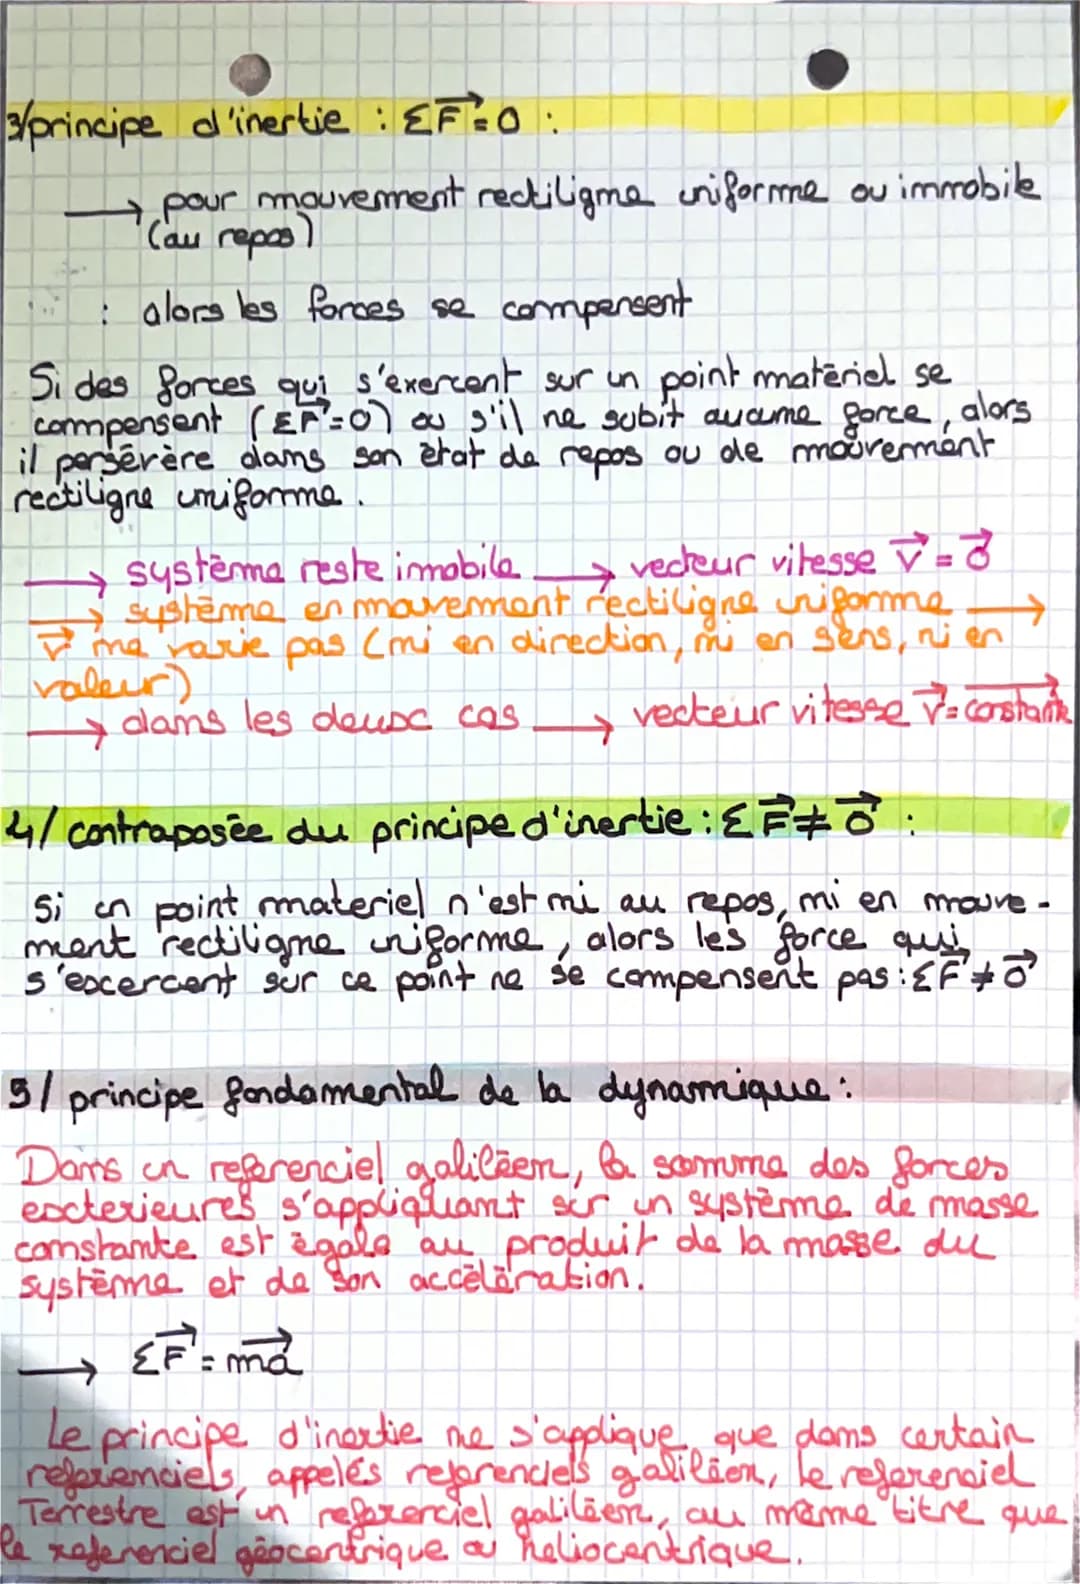 3/principe d'inertie : ΣF⃗=0 :
→ pour mouvement rectiligne uniforme ou immobile
(au repos)
: alors les forces se compensent
Si des forces qui s'exercent sur un point matériel se
compensent (ΣF⃗=0) ou s'il ne subit aucune force, alors
il persévère dans son état de repos ou de mouvement
rectiligne uniforme.
→ système reste immobile → vecteur vitesse v⃗ = 0⃗
→ système en mouvement rectiligne uniforme →
v⃗ ne varie pas (ni en direction, ni en sens, ni en
valeur)
→ dans les deux cas → vecteur vitesse v⃗ = constante
4/ contraposée du principe d'inertie : ΣF⃗ ≠ 0⃗ :
Si un point materiel n'est ni au repos, ni en mouve-
ment rectiligne uniforme, alors les force qui
s'excercent sur ce point ne se compensent pas : ΣF⃗ ≠ 0⃗
5/ principe fondamental de la dynamique :
Dans un referenciel galiléen, la somme des forces
exterieures s'appliquant sur un système de masse
constante est égale au produit de la masse du
système et de son accélération.
→ ΣF⃗ = ma⃗
Le principe d'inertie ne s'applique que dans certain
referenciels, appelés referenciels galiléen, le referenciel
Terrestre est un referenciel galiléen, au même titre que
le referenciel géocentrique ou heliocentrique.